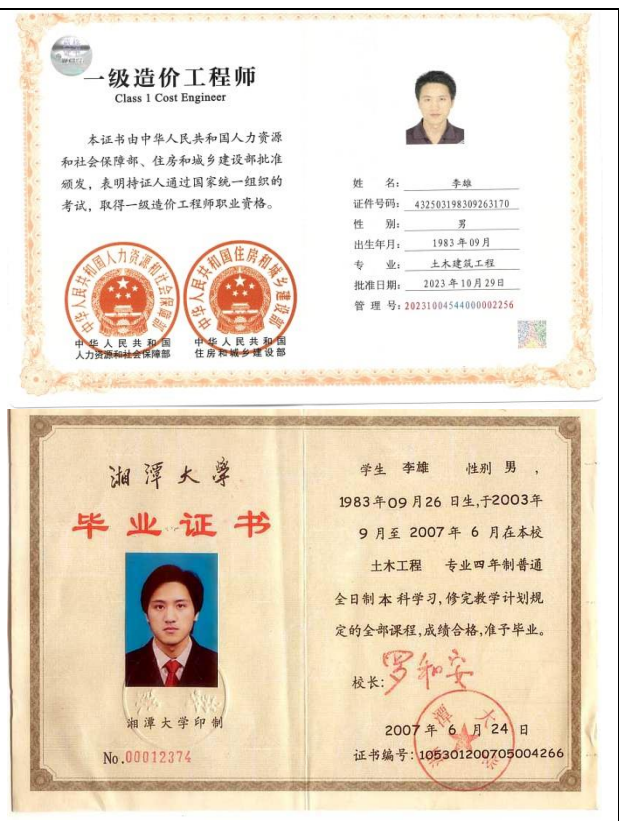 一级造价工程师
Class 1 Cost Engineer
本证书由中华人民共和国人力资源
和社会保障部、住房和城乡建设部批准
颁发，表明持证人通过国家统一组织的
考试，取得一级造价工程师职业资格。
中华人民共和国人力资源和社会保障部
中华人民共和国住房和城乡建设部
中华人民共和国
人力资源和社会保障部
中华人民共和国
住房和城乡建设部
姓 名：李雄
证件号码：432503198309263170
性 别：男
出生年月：1983年09月
专 业：土木建筑工程
批准日期：2023年10月29日
管 理 号：20231004544000002256
湘潭大学
毕业证书
湘潭大学印制
No.00012374
学生 李雄 性别 男 ，
1983年09月26 日生,于2003年
9 月至 2007年 6 月在本校
土木工程 专业四年制普通
全日制本科学习,修完教学计划规
定的全部课程,成绩合格,准予毕业。
校长: 罗和安
2007年 6 月 24 日
证书编号: 105301200705004266